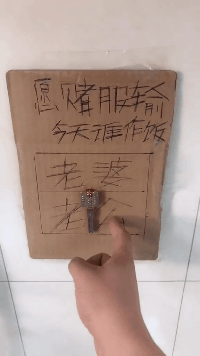 愿赌服输
今天谁作饭
老婆
老公